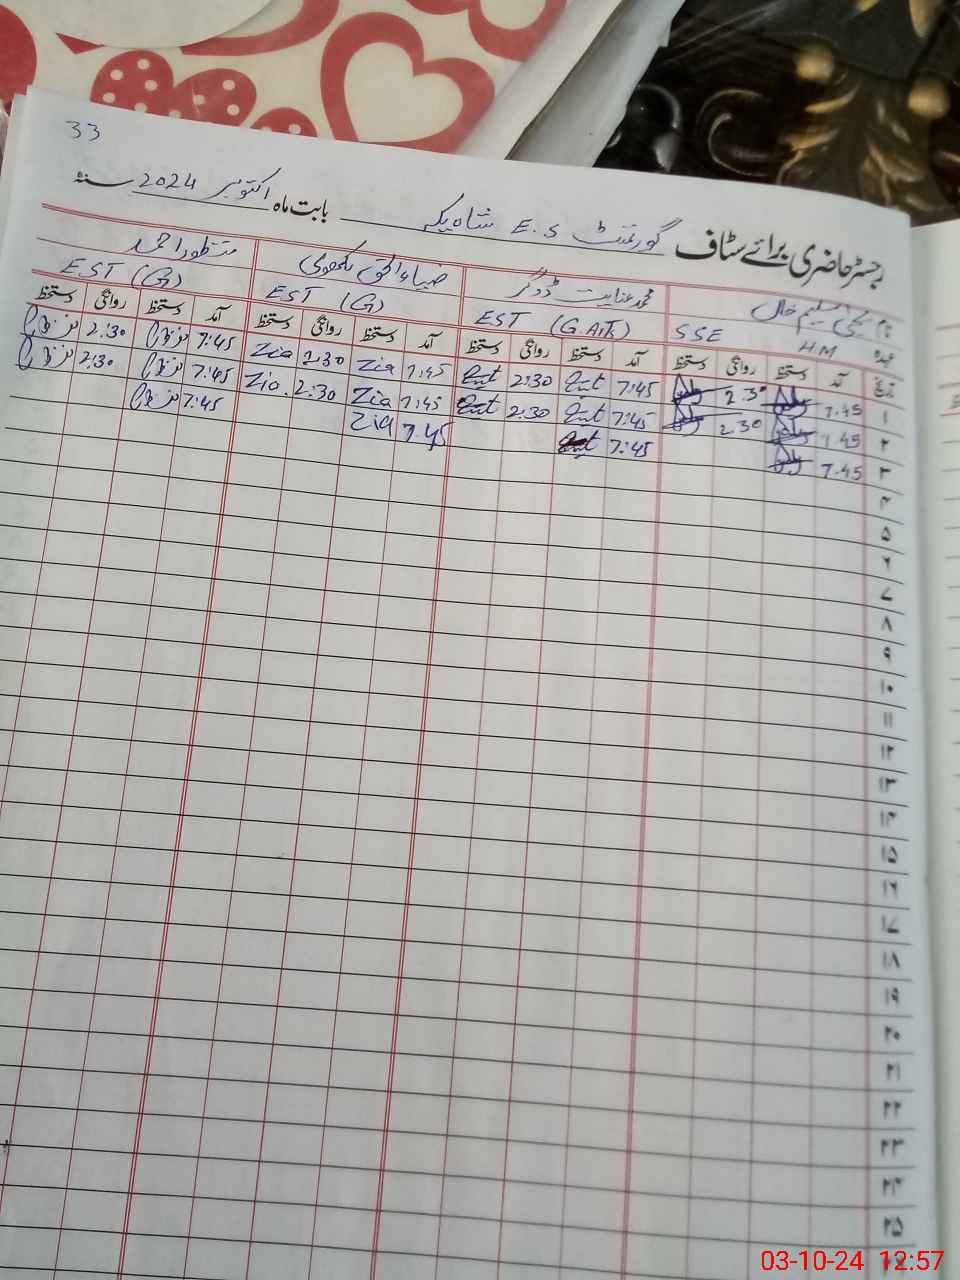 33
رجسٹر حاضری برائے سٹاف گورنمنٹ E.S شاہ بابت ماہ اکتوبر 2024 سنہ
نام یحیٰی سلیم خان محمد عنایت ڈوگر ضیاء الحق لکھوی منظور احمد
عہدہ HM SSE EST (G.Ait) EST (G) EST (G)
تاریخ آمد دستخط روانگی دستخط آمد دستخط روانگی دستخط آمد دستخط روانگی دستخط آمد دستخط روانگی دستخط
۱ 7.45 2.30 7:45 2:30 7:45 Zia 2:30 Zia 7:45 2:30
۲ 7.45 2.30 7:45 2:30 7:45 Zia 2:30 Zia 7:45 2:30
۳ 7.45 7:45 7.45 Zia 7:45
۴
۵
۶
۷
۸
۹
۱۰
۱۱
۱۲
۱۳
۱۴
۱۵
۱۶
۱۷
۱۸
۱۹
۲۰
۲۱
۲۲
۲۳
۲۴
۲۵
03-10-24 12:57